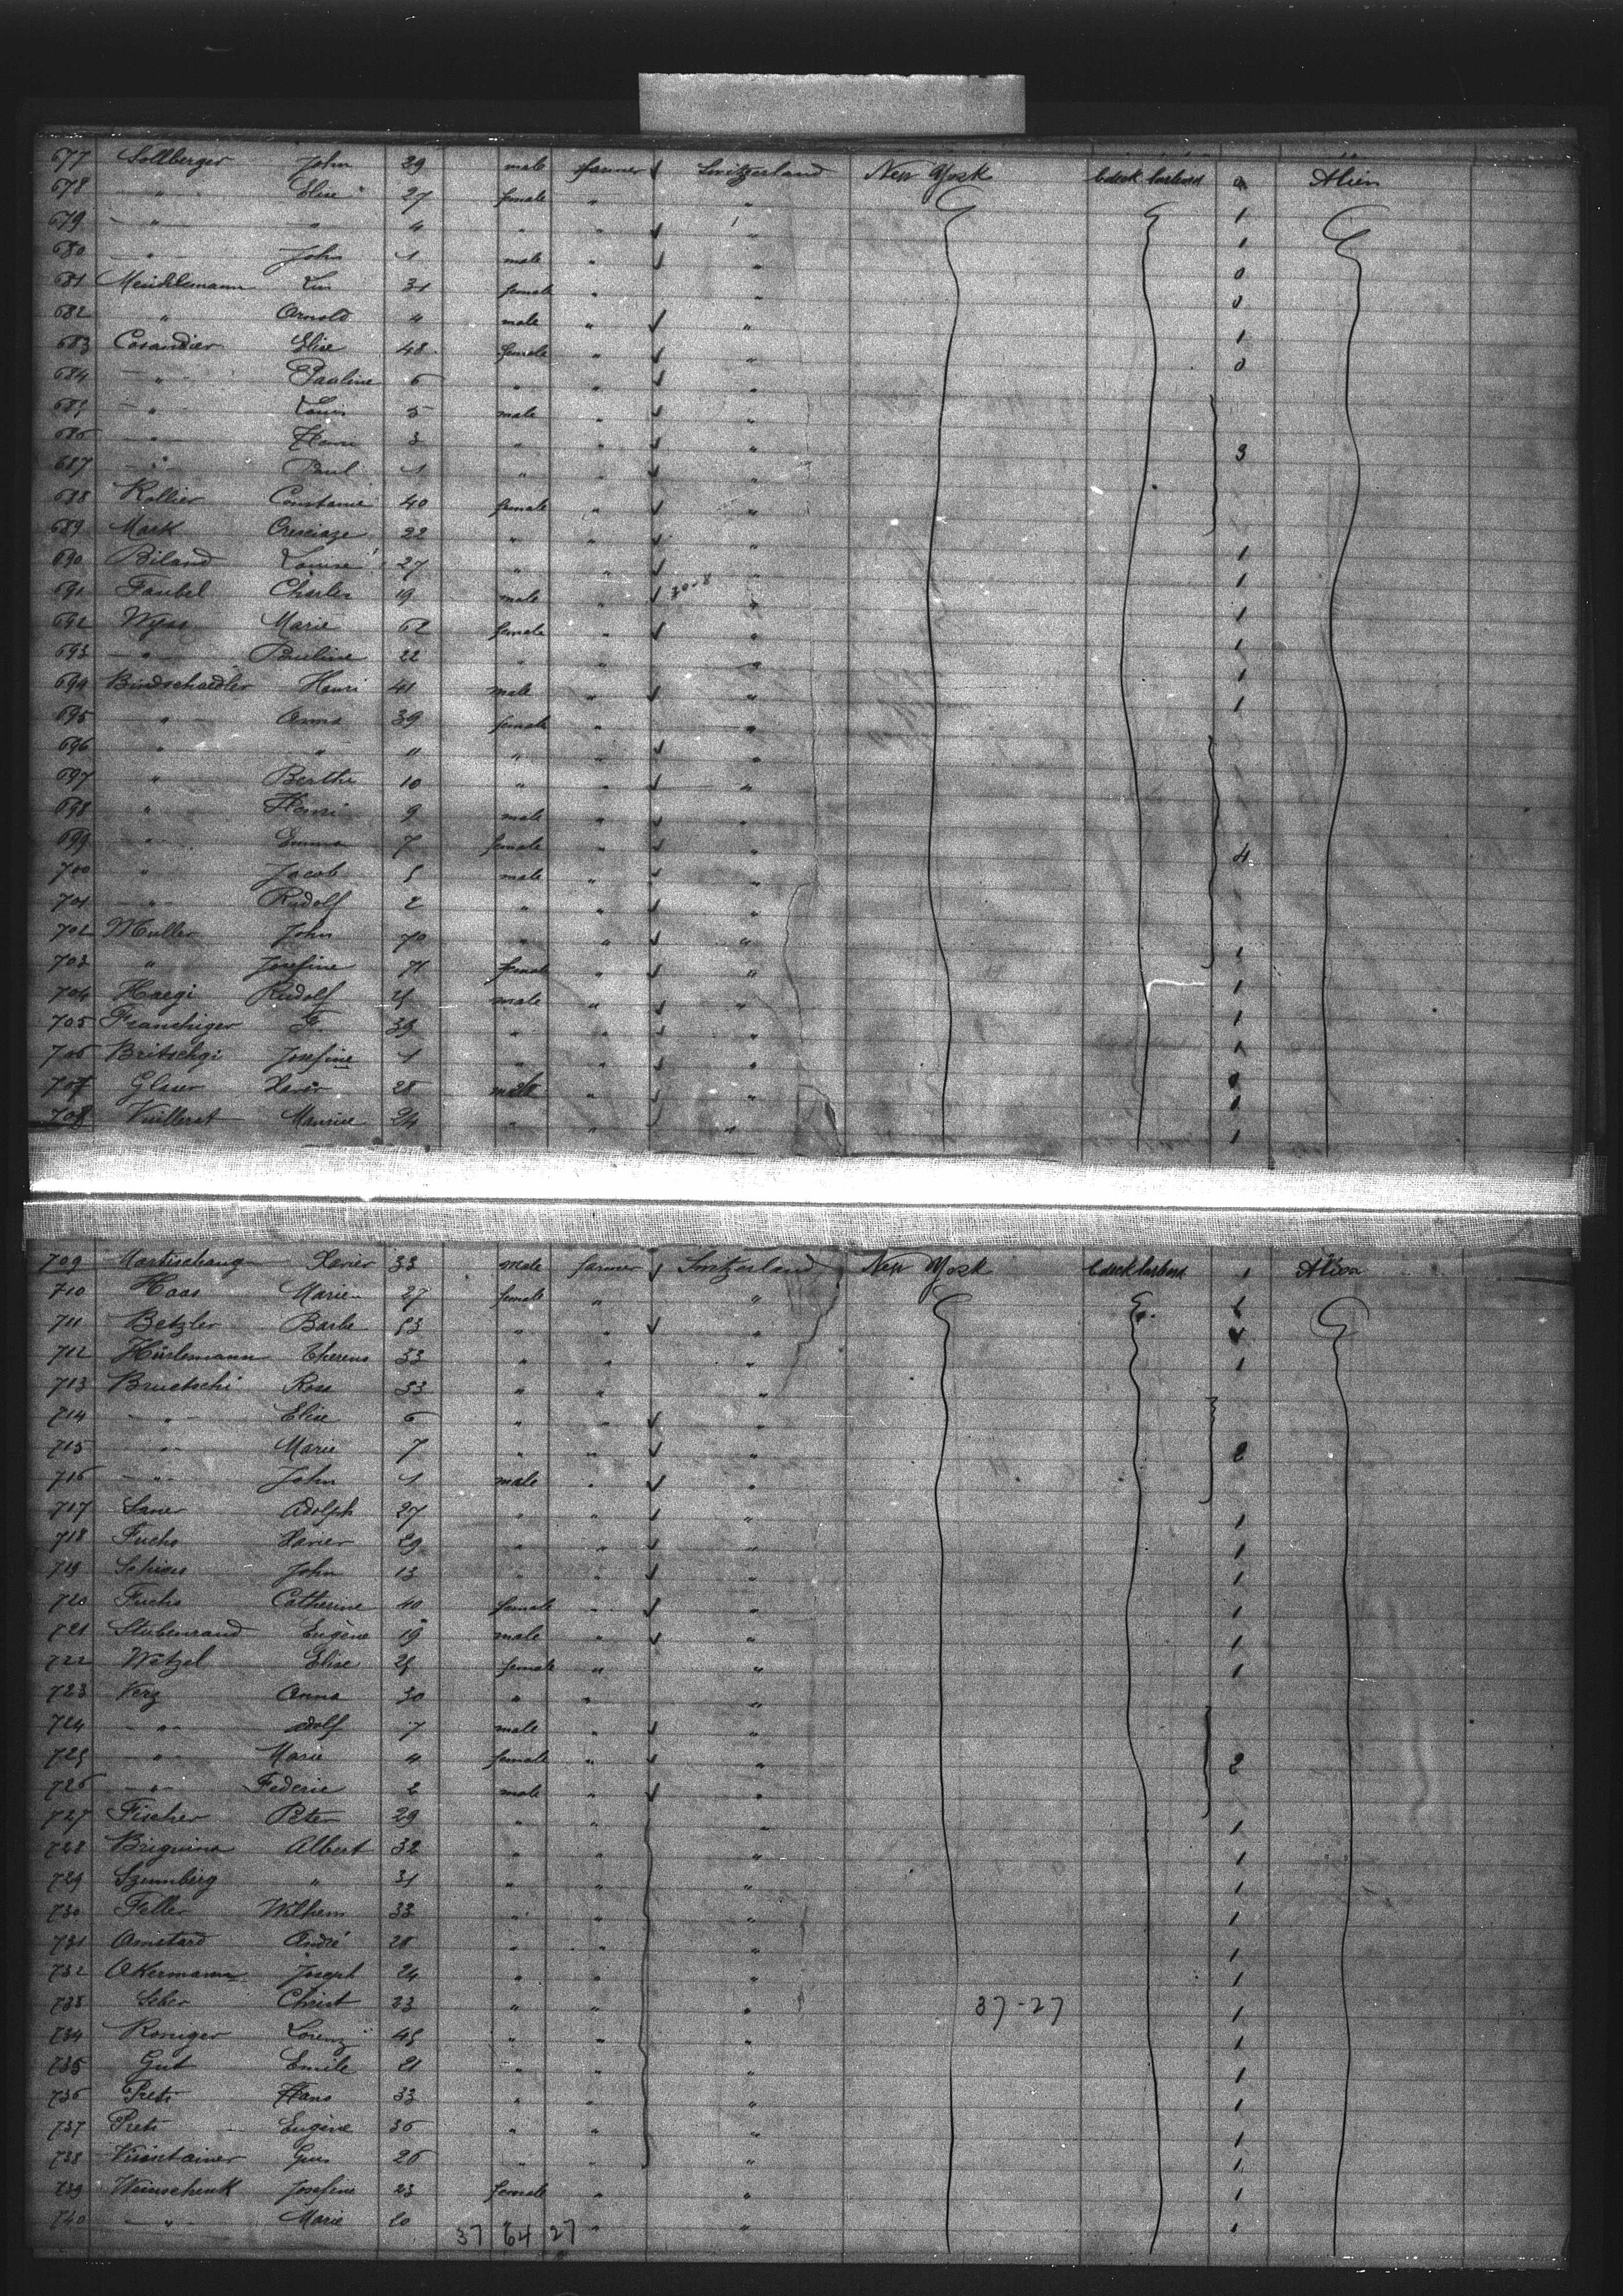 677 Sollberger John 29 male farmer Switzerland New York 0 Alien
678 " Elise 27 female " " 1
679 " " 4 " " " 1
680 " John 1 male " " 0
681 31 female " " 0
682 " Arnold 4 male " " 1
683 Cosandier Elise 48 female " " 0
684 " Pauline 6 " " "
685 " Louis 5 male " "
686 " Henri 3 " " " 3
687 " Paul 1 " " "
688 Rollier Constance 40 female " "
689 Mark 22 " " " 1
690 Biland Louise 27 " " " 1
691 Faubel Charles 19 male " " 1
692 Wyss Marie 62 female " " 1
693 " Pauline 22 " " " 1
694 Bindschaedler Henri 41 male " " 1
695 " Anna 39 female " "
696 " " 11 " " "
697 " Berthe 10 " " "
698 " Henri 9 male " "
699 " Emma 7 female " " 4
700 " Jacob 5 male " "
701 " Rudolf 2 " " "
702 Muller John 70 " " " 1
703 " Josefine 71 female " " 1
704 Haegi Rudolf 25 male " " 1
705 Franchiger F. 39 " " " 1
706 Britschgi Josefine 1 " " " 0
707 Glaur Xavir 28 male " " 1
708 Vuillerat Maurice 24 " " " 1
709 Xavier 33 male farmer Switzerland New York 1 Alien
710 Haas Marie 27 female " "
711 Betzler Barbe 53 " " "
712 Hürlemann 33 " " " 1
713 Bruetschi Rosa 33 " " "
714 " Elise 6 " " "
715 " Marie 7 " " " 2
716 " John 1 male " "
717 Saner Adolph 27 " " " 1
718 Fuchs Xavier 29 " " " 1
719 John 13 " " " 1
720 Fuchs Catherine 40 female " " 1
721 Stubenrand Eugène 19 male " " 1
722 Wetzel Elise 25 female " " 1
723 Verz Anna 30 " " "
724 " Adolf 7 male " "
725 " Marie 4 female " " 2
726 " Federic 2 male " "
727 Fischer Peter 29 " " " 1
728 Albert 32 " " " 1
729 " 31 " " " 1
730 Feller Wilhem 33 " " " 1
731 Amstard André 28 " " " 1
732 Akermann Joseph 24 " " " 1
733 Christ 23 " " " 37-27 1
734 Roniger Lorenz 45 " " " 1
735 Gut Emile 21 " " " 1
736 Hans 33 " " " 1
737 Eugène 36 " " " 1
738 26 " " " 1
739 Weinschenk Josefine 23 female " " 1
740 " Marie 20 " " " 1
37 64 27